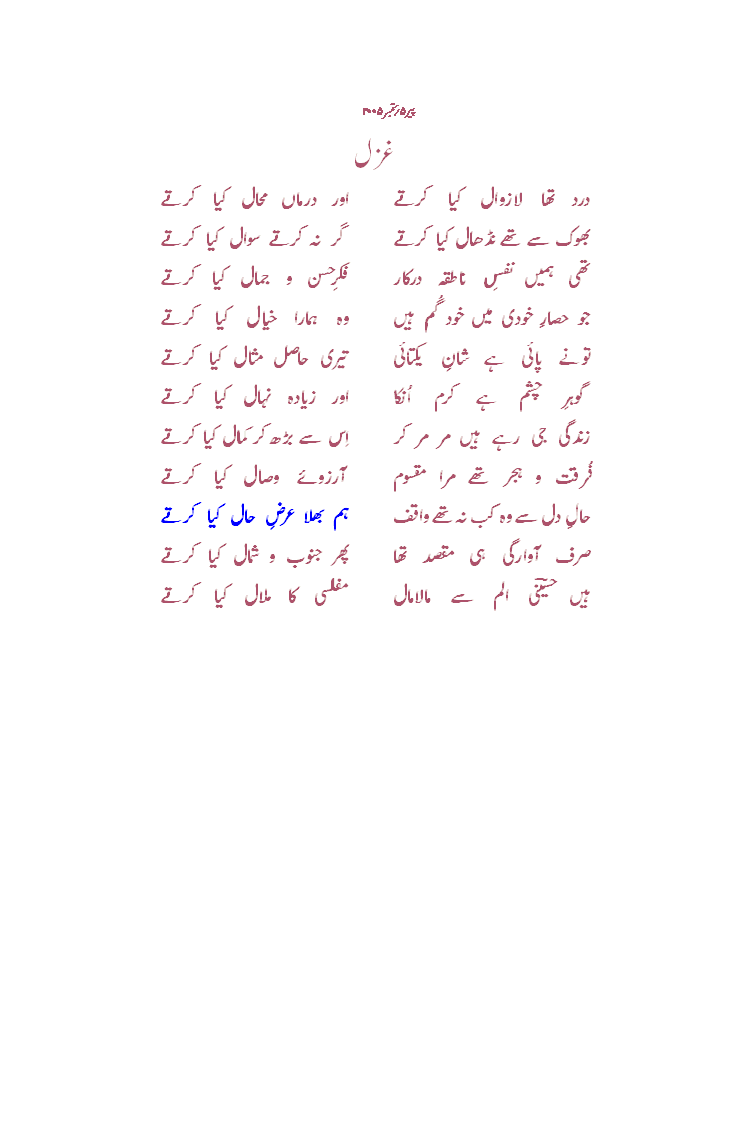 پیر ۵؍ستمبر ۲۰۰۵
غزل
درد تھا لازوال کیا کرتے اور درماں محال کیا کرتے
بھوک سے تھے نڈھال کیا کرتے گر نہ کرتے سوال کیا کرتے
تھی ہمیں نفسِ ناطقہ درکار فکرِ حسن و جمال کیا کرتے
جو حصارِ خودی میں خود گُم ہیں وہ ہمارا خیال کیا کرتے
تونے پائی ہے شانِ یکتائی تیری حاصل مثال کیا کرتے
گوہرِ چشم ہے کرم اُنکا اور زیادہ نہال کیا کرتے
زندگی جی رہے ہیں مر مر کر اِس سے بڑھ کر کمال کیا کرتے
فُرقت و ہجر تھے مرا مقسوم آرزوئے وصال کیا کرتے
حالِ دل سے وہ کب نہ تھے واقف ہم بھلا عرضِ حال کیا کرتے
صرف آوارگی ہی مقصد تھا پھر جنوب و شمال کیا کرتے
ہیں حسیؔنی الم سے مالامال مفلسی کا ملال کیا کرتے